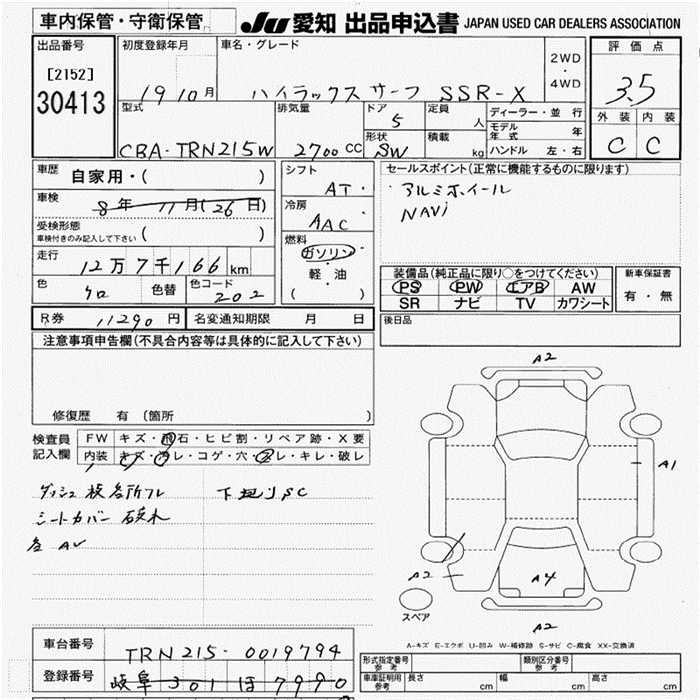 車内保管・守衛保管
JU 愛知 出品申込書 JAPAN USED CAR DEALERS ASSOCIATION
出品番号
[2152]
30413
初度登録年月
19 10月
車名・グレード
ハイラックスサーフ SSR-X
2WD
・
4WD
評価点
3.5
外装 内装
C C
型式
CBA-TRN215W
排気量
2700 CC
ドア
5
形状
SW
定員
人
積載
kg
ディーラー・並行
モデル年式 年
ハンドル 左・右
車歴
自家用・( )
車検
8年 11月(26日)
受検形態
車検付きのみ記入して下さい ( )
走行
12万7千166 km
色
クロ
色替
色コード
202
シフト
AT
冷房
AAC
燃料
ガソリン
・
軽・油
( )
セールスポイント(正常に機能するものに限ります)
アルミホイール
NAVi
装備品(純正品に限り○をつけてください)
PS PW エアB AW
SR ナビ TV カワシート
新車保証書
有・無
R券 11290 円
名変通知期限 月 日
後日品
注意事項申告欄(不具合内容等は具体的に記入して下さい)
修復歴 有 (箇所 )
検査員
記入欄
FW キズ・飛石・ヒビ割・リペア跡・X要
内装 キズ・汚レ・コゲ・穴・スレ・キレ・破レ
ダッシュ 板各所フレ
下廻りSC
シートカバー
各 AV
A2
A1
A2
A4
A2
スペア
A-キズ E-エクボ U-凹み W-補修跡 S-サビ C-腐食 XX-交換済
車台番号
TRN215-0019794
登録番号
岐阜 301 ほ 7990
形式指定番号
参考
類別区分番号
参考
車庫証明
参考
長さ cm 幅 cm 高さ cm